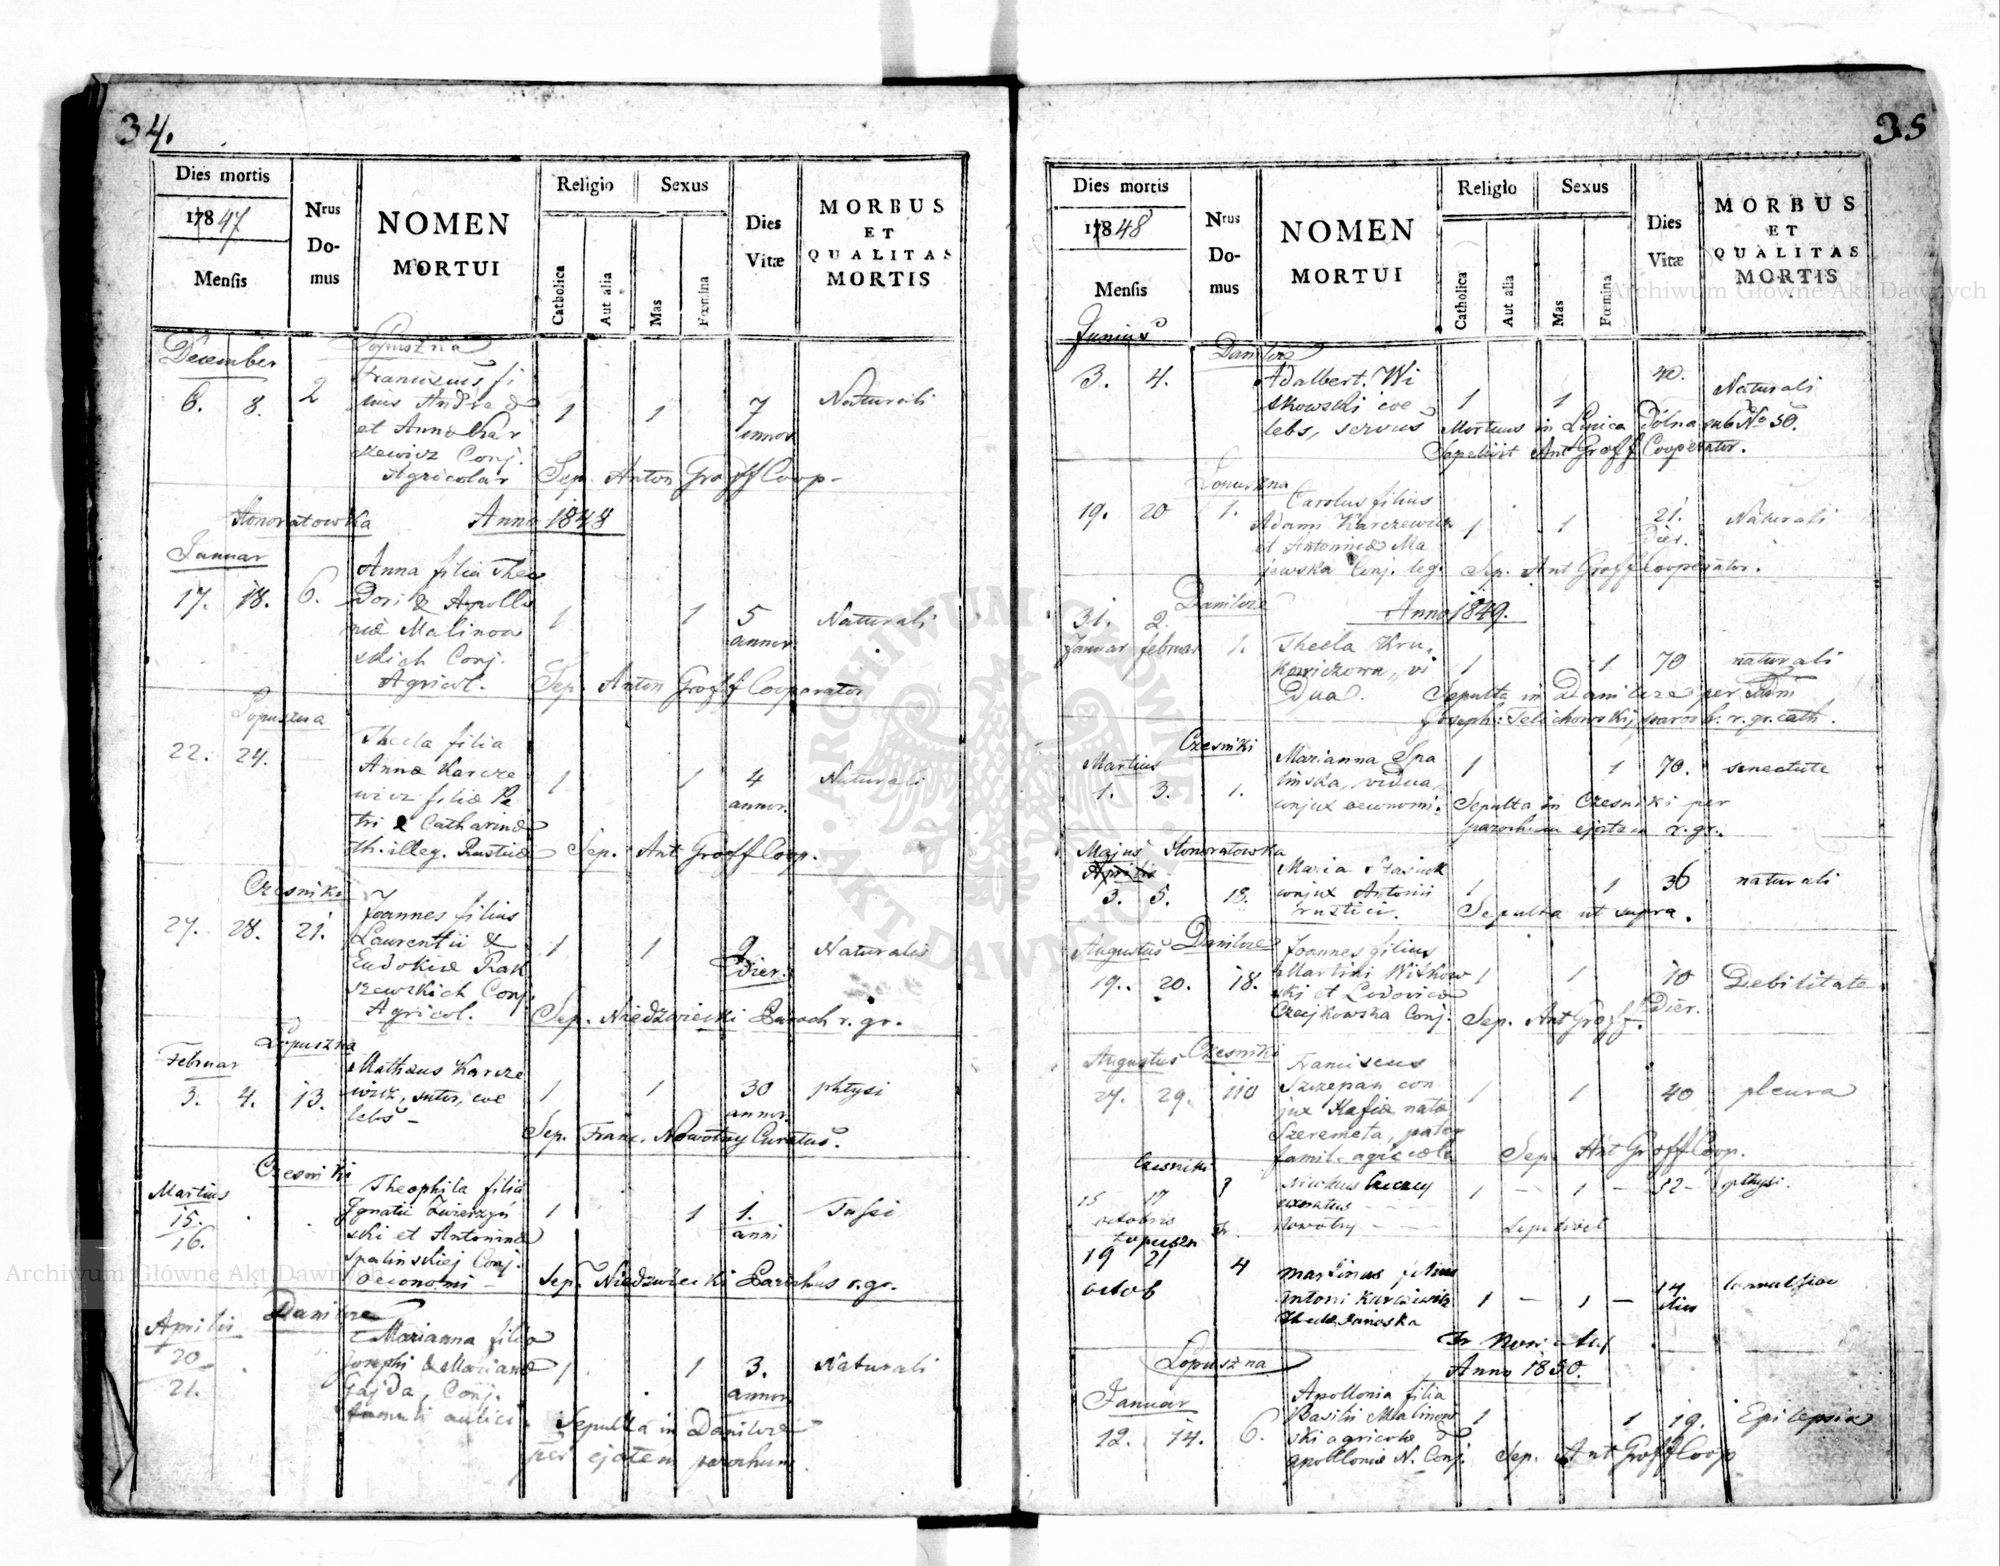 34.
Dies mortis
1847
Mensis
Nrus Domus
NOMEN MORTUI
Religio
Catholica
Aut alia
Sexus
Mas
Fœmina
Dies Vitæ
MORBUS ET QUALITAS MORTIS
December
Lopuszna
6. 8. 2
Franciscus fi
lius Andreæ &
et Anna Kar
czewicz Conj.
Agricolar
1 1 7 annor
Naturali
Sep. Anton Groff Coop.
Honoratowka
Anno 1848
Januar
17. 18. 6.
Anna filia Theo
dori & Apollo
niæ Malinow
skich Conj.
Agricol.
1 1 5 annor
Naturali
Sep. Anton Groff Cooperator
Lopuszna
22. 24.
Thecla filia
Annæ Karcze
wicz filiæ Pe
tri & Catharinæ
th. illeg. Rusticæ
1 1 4 annor.
Naturali
Sep. Ant Groff Coop.
Czesniki
27. 28. 21.
Joannes filius
Laurentii &
Eudokiæ Rak
szewskich Conj.
Agricol.
1 1 9 Dier.
Naturalis
Sep. Niedzwiecki Paroch r. gr.
Februar
Lopuszna
3. 4. 13.
Mathæus Karcze
wicz, sutor, coe
lebs
1 1 30 annor.
phtysi
Sep. Franc. Nowotny Curatus.
Martius
Czesniki
15.
16.
Theophila filia
Ignatii Zwierzyń
ski et Antoninæ
Spalinskiej Conj.
oeconomi
1 1 1. anni
Tussi
Sep. Niedzwiecki Parochus r. gr.
Aprilis
Danilcze
20
21.
Marianna filia
Josephi & Mariannæ
Gajda, Conj.
famuli aulici.
1 1 3. annor
Naturali
Sepulta in Danilcze
per ejatem parochum
35
Dies mortis
1848
Mensis
Nrus Domus
NOMEN MORTUI
Religio
Catholica
Aut alia
Sexus
Mas
Fœmina
Dies Vitæ
MORBUS ET QUALITAS MORTIS
Junius
Danilcze
3. 4.
Adalbert. Wi
tkowski coe
lebs, servus
1 1 40.
Naturali
Mortuus in Lipica Dolna sub No 50.
Sepelivit Ant Groff Cooperator.
Lopuszna
19. 20 1.
Carolus filius
Adami Karczewicz
et Antoninæ Ma
jewska Conj. leg.
1 1 21. Dier.
Naturali
Sep. Ant Groff Cooperator.
Danilcze
Anno 1849.
31. 2.
Januar februar 1.
Thecla Kru
kewiczowa, vi
dua.
1 1 70
naturali
Sepulta in Danilcze per
Joseph: Telichowskij paroch. r. gr. cath.
Czesniki
Martius
1. 3. 1.
Marianna Spa
linska, vidua,
conjux oeconomi.
1 1 70.
senectute
Sepulta in Czesniki per
parochum ejatem r. gr.
Majus Honoratowka
Aprilis
3. 5. 18.
Maria Stasiuk
conjux Antonii
rustici.
1 1 36
naturali
Sepulta ut supra.
Augustus Danilcze
19. 20. 18.
Joannes filius
Martini Witkow
ski et Ludovicæ
Czajkowska Conj.
1 1 10 Dier.
Debilitate
Sep. Ant Groff.
Augustus Czesniki
27. 29. 110
Franciscus
Szczepan con
jux Kasiæ natæ
Szeremeta, pater
famil. agricola
1 1 40
pleura
Sep. Ant Groff Coop.
Czesniki
15 17
octobris
1 1 52
phtysi.
Nowotny
Sepelivit
Lopuszn
19 21 4
octob
Martinus filius
Antoni Karczewicz
1 1 14 dies
Anno 1850.
Lopuszna
Januar
12. 14. 6.
Apollonia filia
Basilii Malinow
ski agricolæ &
Apolloniæ N. Conj.
1 1 19.
Epilepsia
Sep. Ant Groff Coop
Archiwum Główne Akt Dawnych
Archiwum Główne Akt Dawnych
ARCHIWUM GŁÓWNE AKT DAWNYCH